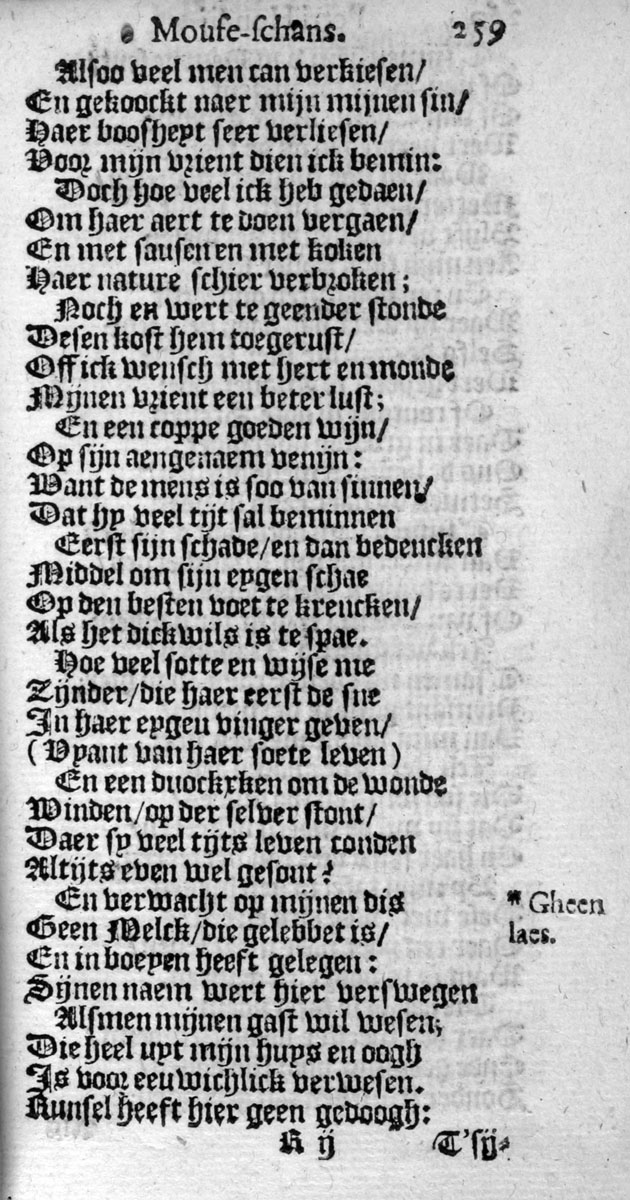 Mouse-schans. 259
Alsoo veel men can verkiesen/
En gekoockt naer mijn mijnen sin/
Haer boosheyt seer verliesen/
Voor mijn vrient dien ick bemin:
Doch hoe veel ick heb gedaen/
Om haer aert te doen vergaen/
En met sausen en met koken
Haer nature schier verbroken;
Noch en wert te geender stonde
Desen kost hem toegerust/
Off ick wensch met hert en monde
Mijnen vrient een beter lust;
En een coppe goeden wijn/
Op sijn aengenaem venijn:
Want de mens is soo van sinnen/
Dat hy veel tijt sal beminnen
Eerst sijn schade/en dan bedencken
Middel om sijn eygen schae
Op den besten voet te krencken/
Als het dickwils is te spae.
Hoe veel sotte en wijse me
Zijnder/die haer eerst de sne
In haer eygeu vinger geven/
(Vyant van haer soete leven)
En een duockxken om de wonde
Winden/op der selver stont/
Daer sy veel tijts leven conden
Altijts even wel gesont?
En verwacht op mijnen dis
* Gheen
Geen Melck/die gelebbet is/
laes.
En in boeyen heeft gelegen:
Sijnen naem wert hier verswegen
Alsmen mijnen gast wil wesen;
Die heel uyt mijn huys en oogh
Is voor eeuwichlick verwesen.
Runsel heeft hier geen gedoogh:
R ij T'sij-